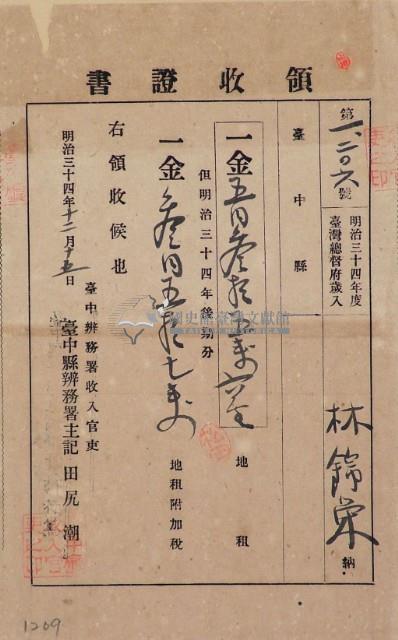 領收證書
第一、二〇六號
明治三十四年度
臺灣總督府歲入
林錦榮 納
臺中縣
一金五円參拾五錢六厘 地租
但明治三十四年後期分
一金參円五拾七錢 地租附加稅
右領收候也
明治三十四年十二月十五日
臺中辨務署收入官吏
臺中縣辨務署主記 田尻潮
國史館臺灣文獻館
TAIWAN HISTORICA
1209